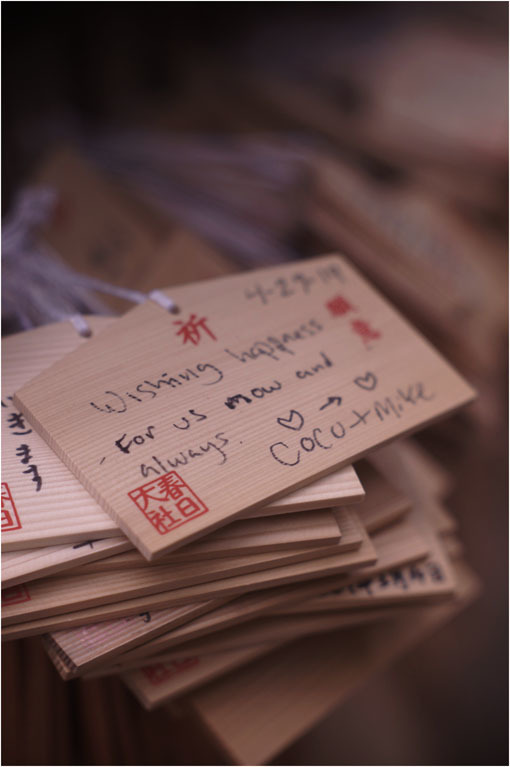 4-29-19
祈
願意
Wishing happness
For us mow and
always.
♡ → ♡
COCO + Mike
春日
大社
きます
日